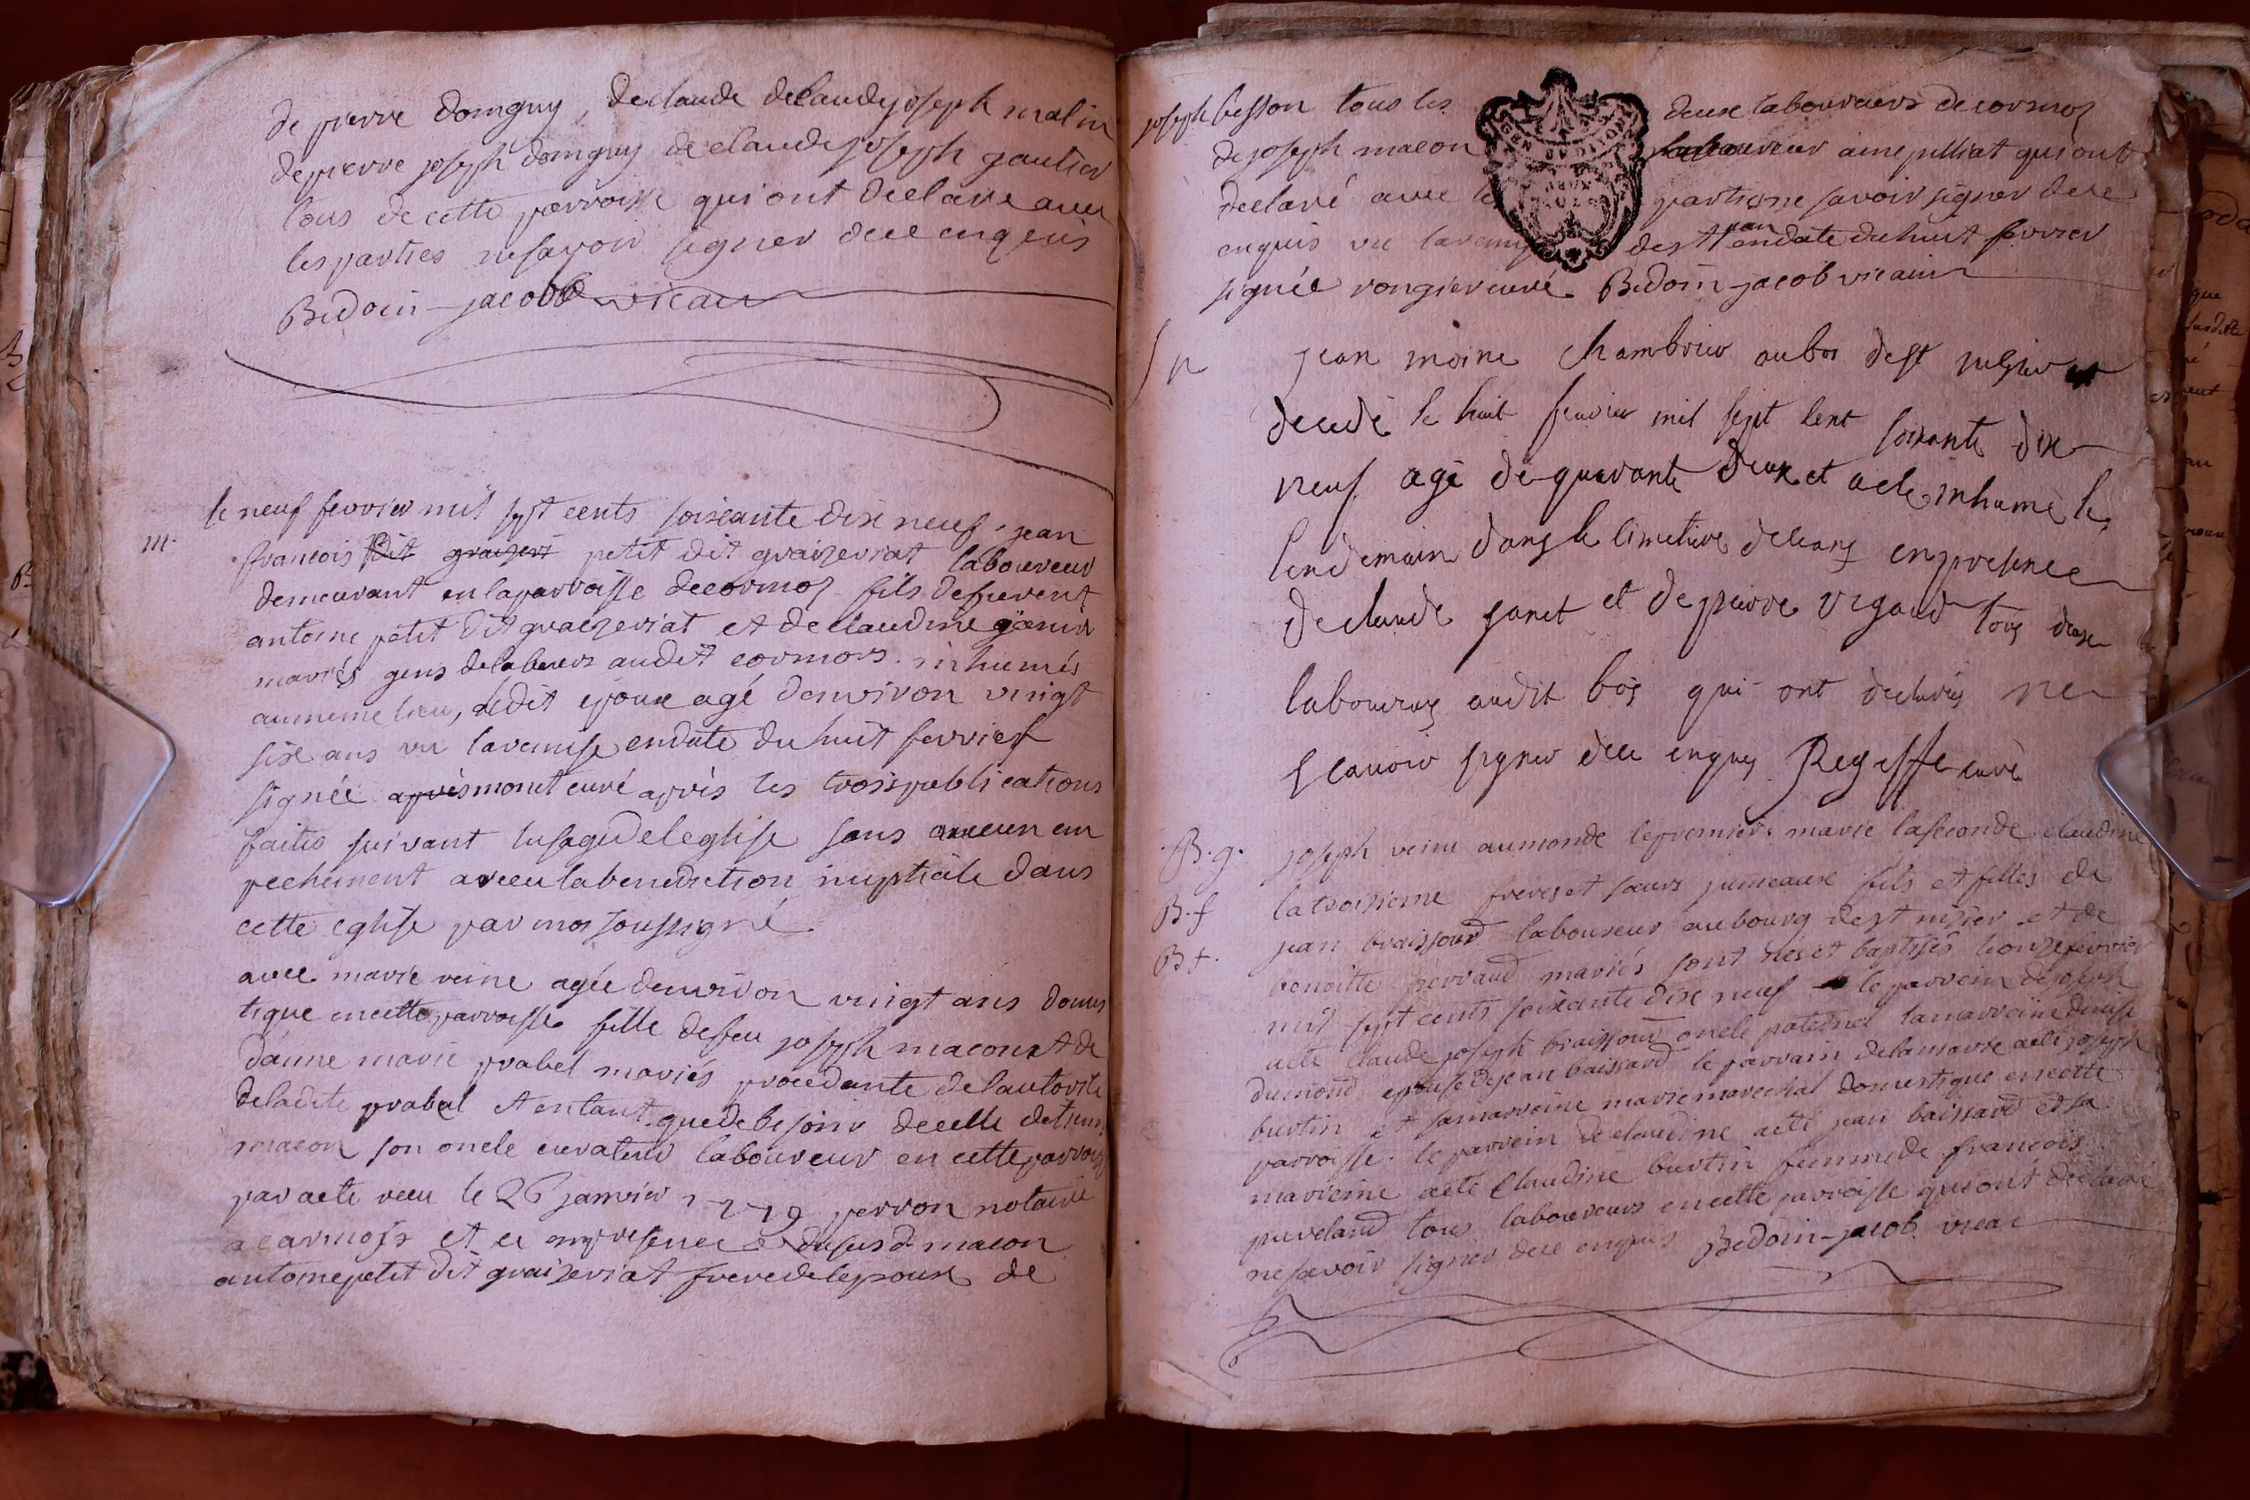 de pierre domguy, declaude delaudejoseph malin
depierre joseph domguy declaudejoseph gautier
tous de cette parroisse qui ont declaré avec
les parties ne savoir signer dece enquis
Bidoin-jacob vicair
le neuf fevrier mil sept cents soixante dix neuf jean
m.
francois petit dit graizeriat laboureur
demeurant en la parroisse decormoz fils defurent
antoine petit dit graizeriat et declaudine
mariés gens delabeurs audit cormoz inhumés
aumeme lieu, ledit epoux agé denviron vingt
six ans vu laremise endate du huit fevrier
signée monet curé après les trois publications
faites suivant lusage deleglise sans aucun em
pechement a receu la benediction nuptiale dans
cette eglise par moy soussigné
avec marie veine agée denviron vingt ans domes
tique encette parroisse fille defeu joseph macon et de
danne marie prabel mariés procedante delautorité
deladite prabel et entant que de besoin decelle
macon son oncle curateur laboureur en cette parroisse
par acte recu le 26 janvier 1779 perron notaire
a cormoz et en presence dususd macon
antoine petit dit graizeriat frere delepoux de
joseph besson tous les deux laboureurs de cormoz
de joseph macon laboureur qui ont
declaré avec les parties ne savoir signer dece
enquis vu laremise de st jean endate du huit fevrier
signée rongier curé Bidoin-jacob vicair
jean moine Chambrier au bos de st nizier
decedé le huit fevrier mil sept cent soixante dix
neuf agé de quarante deux et a eté inhumé le
lendemain dans le cimetiere deceans en presence
de claude panet et de pierre vigaud tous deux
laboureurs audit bois qui ont declarés ne
scavoir signer dece enquis Regeffe curé
B.g. joseph venu aumonde lepremier. marie laseconde claudine
B.f latroisieme freres et soeurs jumeaux fils et filles de
B f. jean braissoud laboureur aubourg de st nizier et de
benoitte perraud mariés sont nés et baptisés leonze fevrier
mil sept cents soixante dix neuf le parrein de joseph
acté claude joseph braissoud oncle paternel lamarreine denise
dumond epouse dejean baissard le parrain delamarie acté joseph
burtin et samarreine marie marechal domestique encette
parroisse. le parrein de claudine acté jean baissard et sa
marreine acté Claudine burtin femme de francois
puveland tous laboureurs encette parroisse qui ont declaré
ne savoir signer dece enquis Bidoin-jacob vicai